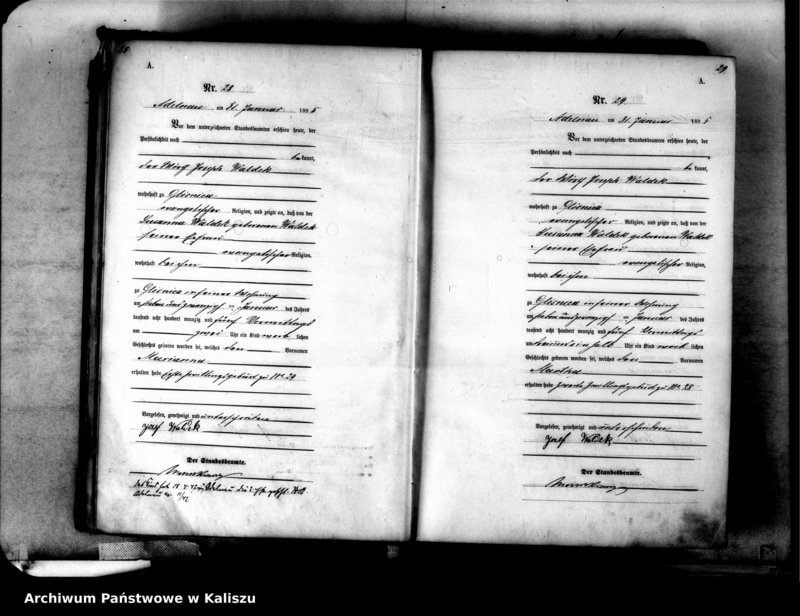 28.
A.
Nr. 28
Adelnau am 31. Januar 1895
Vor dem unterzeichneten Standesbeamten erschien heute, der
Persönlichkeit nach
be kannt,
der Wirth Joseph Waldek
wohnhaft zu Glisnica
evangelischer Religion, und zeigte an, daß von der
Susanna Waldek geborenen Waldek
seiner Ehefrau
evangelischer Religion,
wohnhaft bei ihm
zu Glisnica in seiner Wohnung
am sieben und zwanzigsten Januar des Jahres
tausend acht hundert neunzig und fünf Vormittags
um zwei Uhr ein Kind weiblichen
Geschlechts geboren worden sei, welches den Vornamen
Marianna
erhalten habe Erste Zwillingsgeburt zu No. 29
Vorgelesen, genehmigt und unterschrieben
Josef Waldek
Der Standesbeamte.
29.
A.
Nr. 29.
Adelnau am 31. Januar 1895
Vor dem unterzeichneten Standesbeamten erschien heute, der
Persönlichkeit nach
be kannt,
der Wirth Joseph Waldek
wohnhaft zu Glisnica
evangelischer Religion, und zeigte an, daß von der
Susanna Waldek geborenen Waldek
seiner Ehefrau
evangelischer Religion,
wohnhaft bei ihm
zu Glisnica in seiner Wohnung
am sieben und zwanzigsten Januar des Jahres
tausend acht hundert neunzig und fünf Vormittags
um Uhr ein Kind weiblichen
Geschlechts geboren worden sei, welches den Vornamen
Martha
erhalten habe Zweite Zwillingsgeburt zu No. 28
Vorgelesen, genehmigt und unterschrieben
Josef Waldek
Der Standesbeamte.
Archiwum Państwowe w Kaliszu